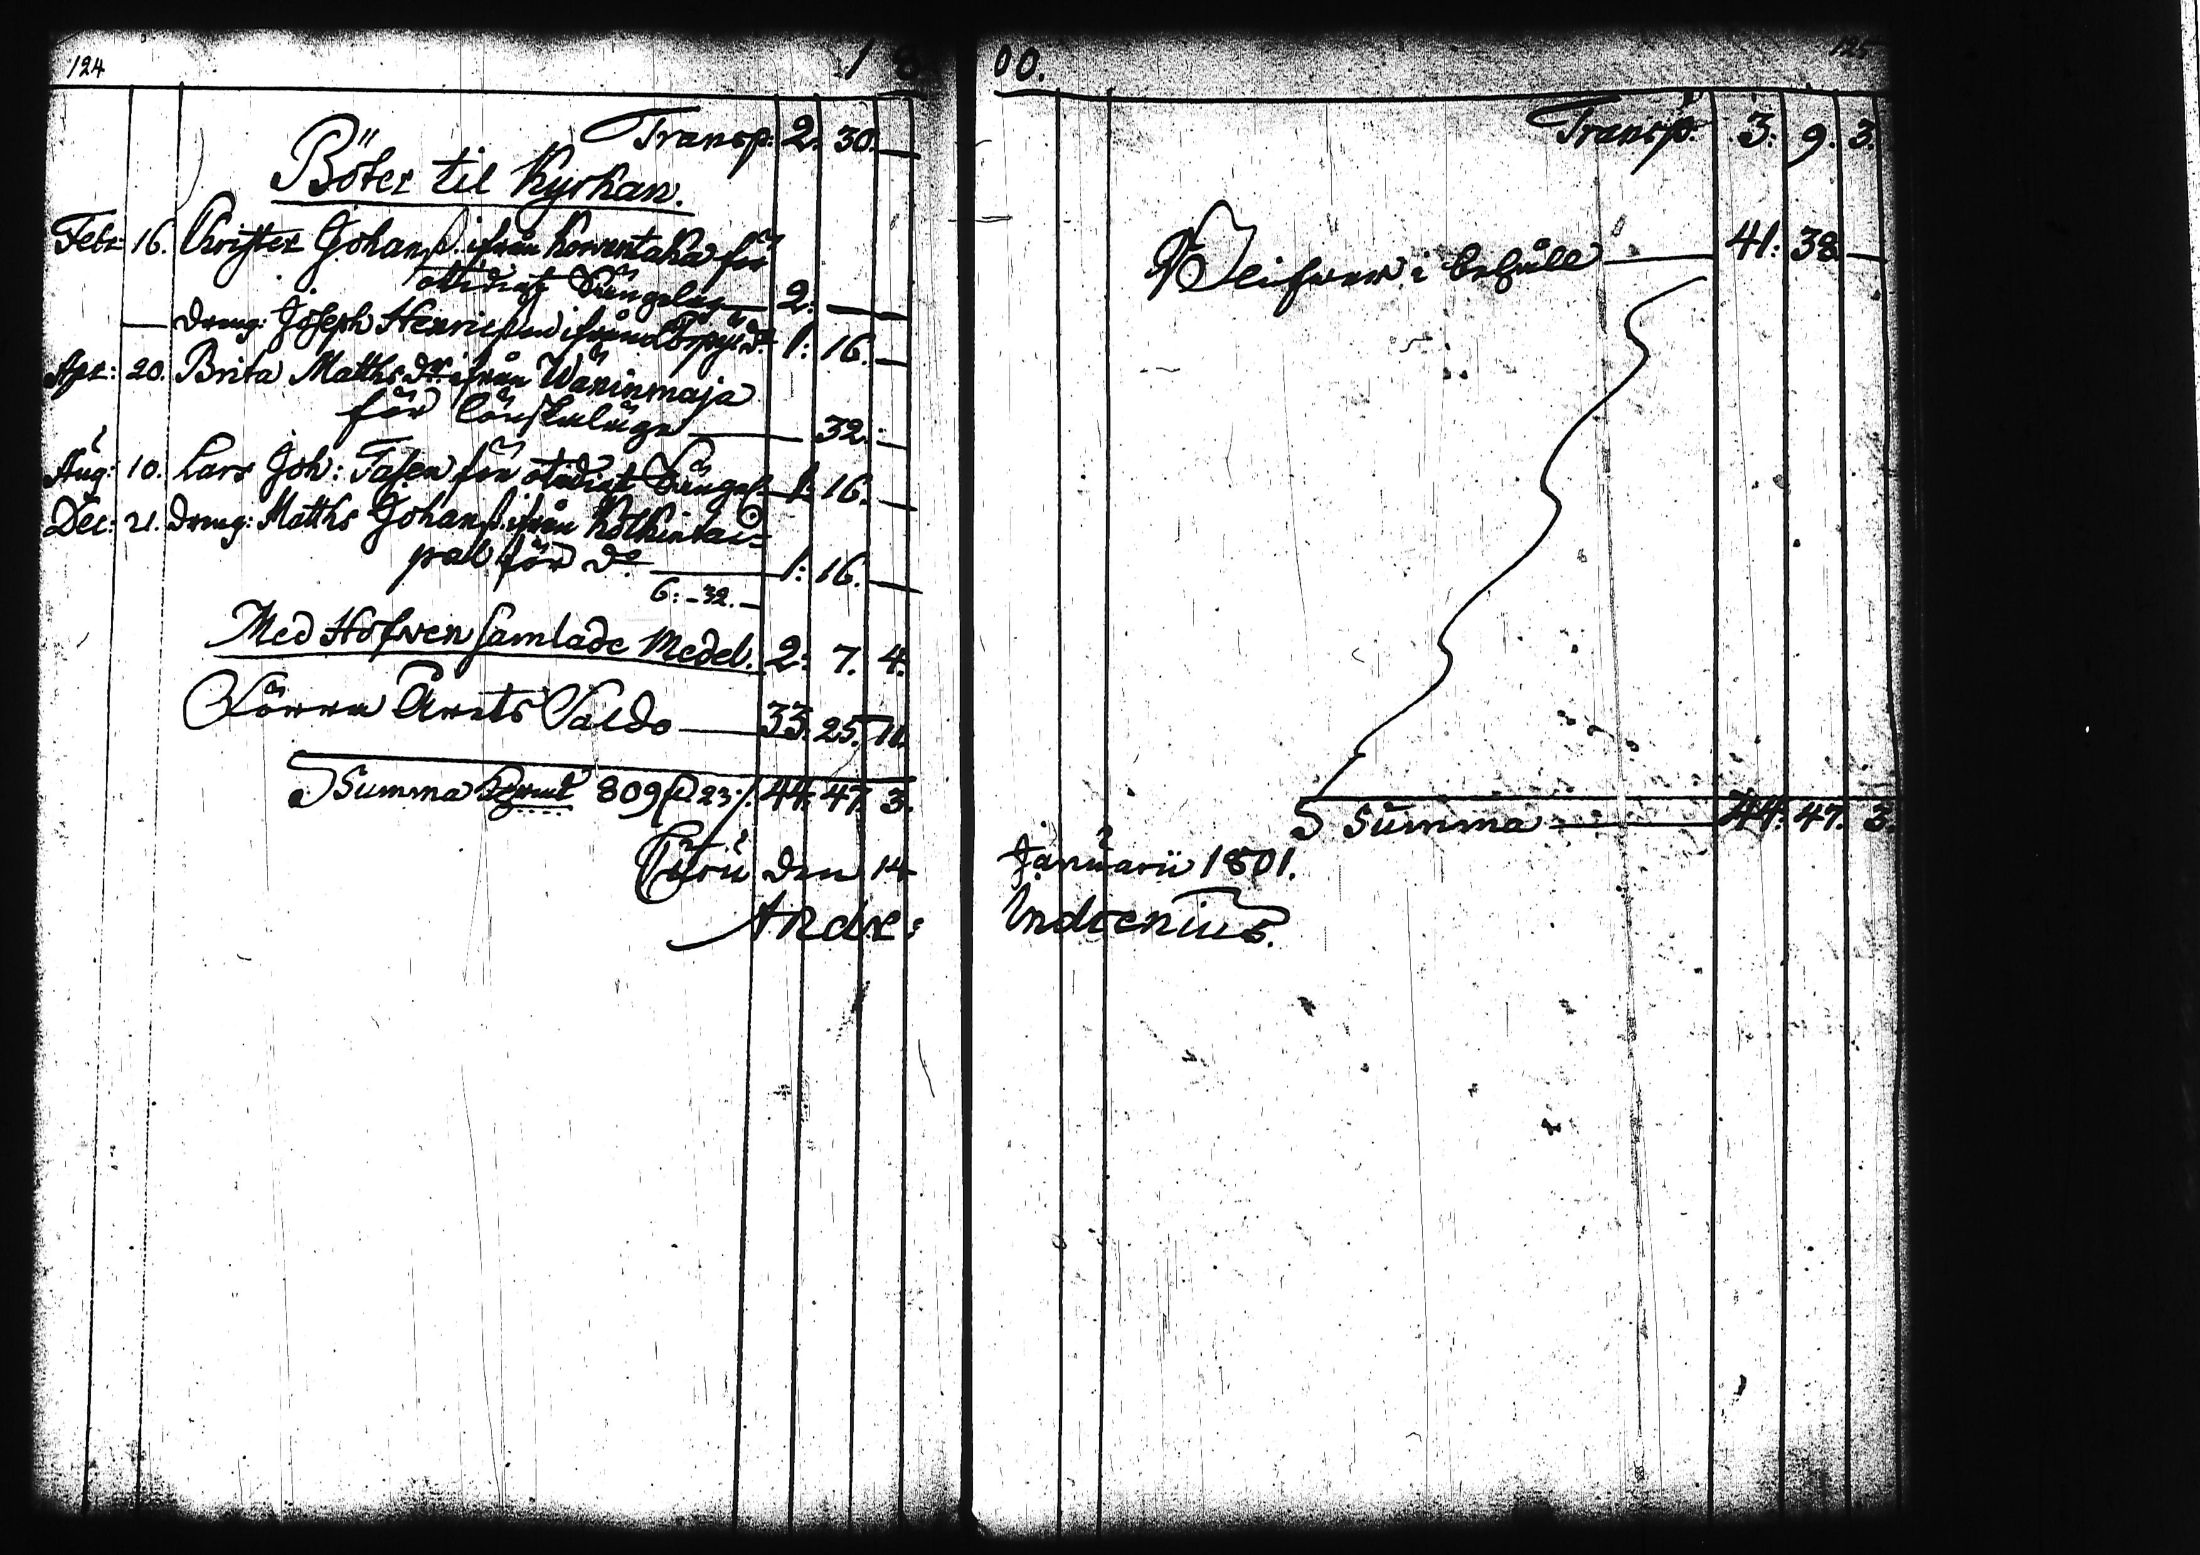 124
1800.
125
Transp: 2. 30. —
Böter til Kyrkan.
Febr: 16. Christer Johanss. ifrån Korventaka för
otidigt Sängelag — 2: — —
— dreng: Joseph Henricsson ifrån d:o 1: 16. —
Apr: 20. Brita Matthsdr. ifrån Wäninmaja
för Lönskaläge — 32. —
Aug: 10. Lars Joh: Tasen för otidigt Sängel. 1: 16. —
Dec: 21. dreng: Matths Johanss. ifrån Kolkintai=
pal för d:o — 1: 16. —
6: -32. —
Med Hofven samlade Medel. 2: 7. 4.
Förra Årets Saldo — 33. 25. 11.
Summa 809 23 44. 47. 3.
den 14
Andr:
Transp. 3: 9. 3.
Blifver i behåll — 41: 38. —
Summa — 44: 47. 3.
Januarii 1801.
Indrenius.